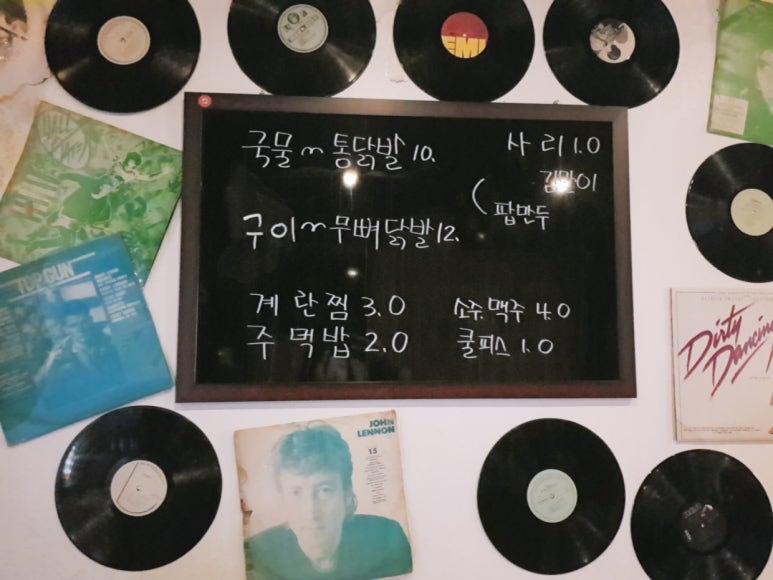 국물~통닭발 10.
사리 1.0
김말이
팝만두
구이~무뼈닭발 12.
계란찜 3.0
소주.맥주 4.0
주먹밥 2.0
쿨피스 1.0
TOP GUN
JOHN
LENNON
15
Dirty
Dancing
EMI